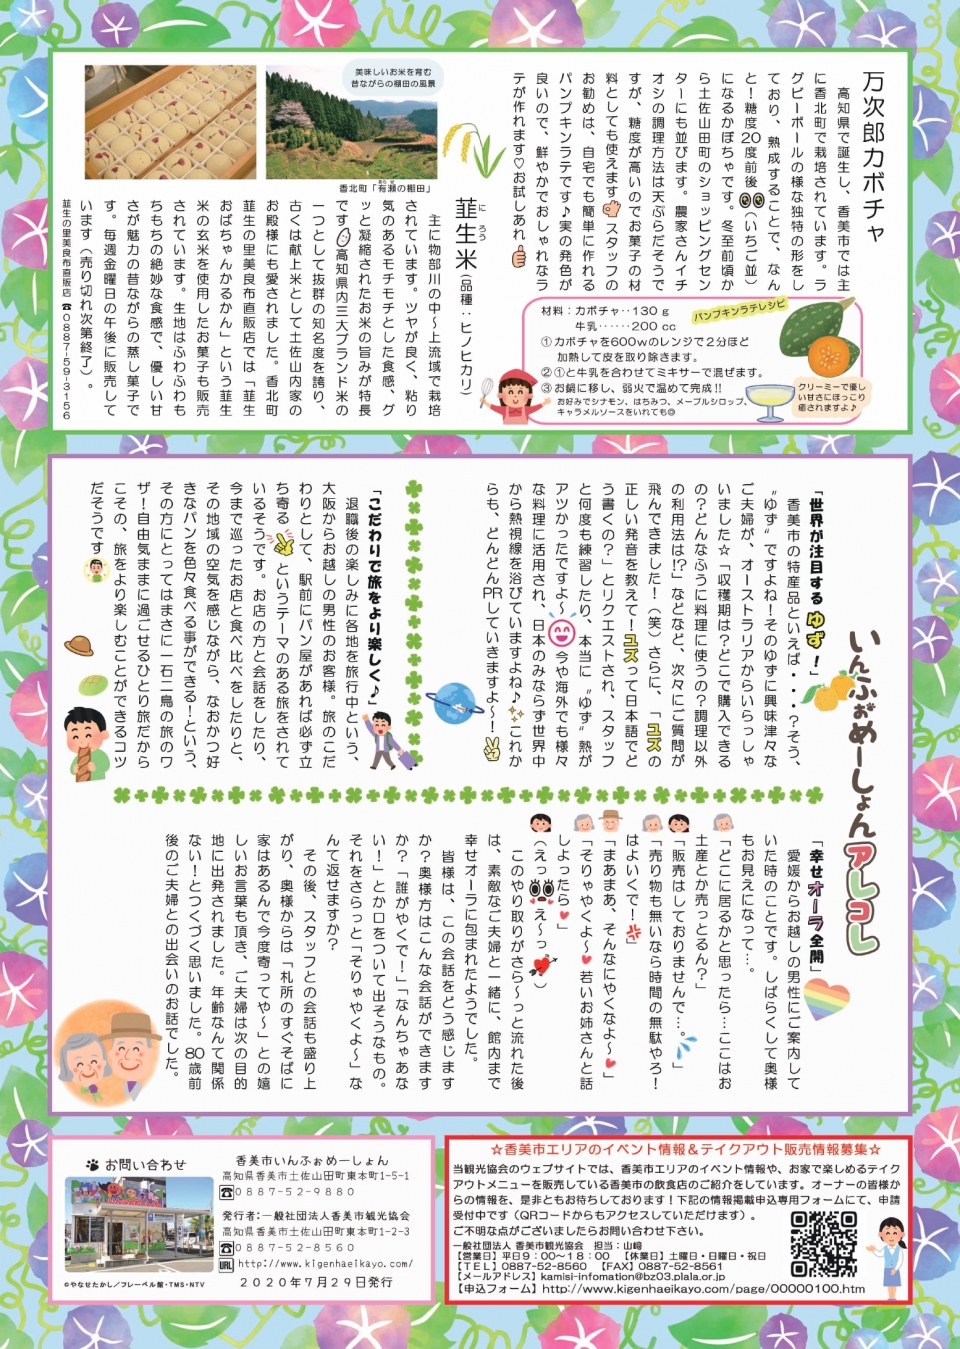 万次郎カボチャ
高知県で誕生し、香美市では主
に香北町で栽培されています。ラ
グビーボールの様な独特の形をし
ており、熟成することで、なん
と!糖度20度前後(いちご並)
になるかぼちゃです。冬至前頃か
ら土佐山田町のショッピングセン
ターにも並びます。農家さんイチ
オシの調理方法は天ぷらだそうで
すが、糖度が高いのでお菓子の材
料としても使えます スタッフの
お勧めは、自宅でも簡単に作れる
パンプキンラテです♪実の発色が
良いので、鮮やかでおしゃれなラ
テが作れます♡お試しあれ
パンプキンラテレシピ
材料:カボチャ‥130g
牛乳‥‥‥200cc
①カボチャを600wのレンジで2分ほど
加熱して皮を取り除きます。
②①と牛乳を合わせてミキサーで混ぜます。
③お鍋に移し、弱火で温めて完成!!
お好みでシナモン、はちみつ、メープルシロップ、
キャラメルソースをいれても◎
クリーミーで優し
い甘さにほっこり
癒されますよ♪
美味しいお米を育む
昔ながらの棚田の風景
香北町「有瀬の棚田」
あらせ
韮生米(品種:ヒノヒカリ)
にろう
主に物部川の中〜上流域で栽培
されています。ツヤが良く、粘り
気のあるモチモチとした食感、グ
ッと凝縮されたお米の旨みが特長
です 高知県内三大ブランド米の
一つとして抜群の知名度を誇り、
古くは献上米として土佐山内家の
お殿様にも愛されました。香北町
韮生の里美良布直販店では「韮生
おばちゃんかるかん」という韮生
米の玄米を使用したお菓子も販売
されています。生地はふわふわも
ちもちの絶妙な食感で、優しい甘
さが魅力の昔ながらの蒸し菓子で
す。毎週金曜日の午後に販売して
います(売り切れ次第終了)。
韮生の里美良布直販店 ☎0887-59-3156
いんふぉめーしょんアレコレ
「世界が注目するゆず!」
香美市の特産品といえば・・・?そう、
〝ゆず〟ですよね!そのゆずに興味津々な
ご夫婦が、オーストラリアからいらっしゃ
いました☆「収穫期は?どこで購入できる
の?どんなふうに料理に使うの?調理以外
の利用法は!?」などなど、次々にご質問が
飛んできました!(笑)さらに、「ユズの
正しい発音を教えて!ユズって日本語でど
う書くの?」とリクエストされ、スタッフ
と何度も練習したり、本当に〝ゆず〟熱が
アツかったですよ〜 今や海外でも様々
な料理に活用され、日本のみならず世界中
から熱視線を浴びていますよね♪これか
らも、どんどんPRしていきますよ〜!
「こだわりで旅をより楽しく♪」
退職後の楽しみに各地を旅行中という、
大阪からお越しの男性のお客様。旅のこだ
わりとして、駅前にパン屋があれば必ず立
ち寄る というテーマのある旅をされて
いるそうです。お店の方と会話をしたり、
今まで巡ったお店と食べ比べをしたりと、
その地域の空気を感じながら、なおかつ好
きなパンを色々食べる事ができる!という、
その方にとってはまさに一石二鳥の旅のワ
ザ!自由気ままに過ごせるひとり旅だから
こその、旅をより楽しむことができるコツ
だそうです
「幸せオーラ全開」
愛媛からお越しの男性にご案内して
いた時のことです。しばらくして奥様
もお見えになって…。
「どこに居るかと思ったら…ここはお
土産とか売っとるん?」
「販売はしておりませんで…。」
「売り物も無いなら時間の無駄やろ!
はよいくで!」
「まあまあ、そんなにやくなよ〜」
「そりゃやくよ〜 若いお姉さんと話
しよったら」
(えっ え〜っ)
このやり取りがさら〜っと流れた後
は、素敵なご夫婦と一緒に、館内まで
幸せオーラに包まれたようでした。
皆様は、この会話をどう感じます
か?奥様方はこんな会話ができます
か?「誰がやくで!」「なんちゃあな
い!」とか口をついて出そうなもの。
それをさらっと「そりゃやくよ〜」な
んて返せますか?
その後、スタッフとの会話も盛り上
がり、奥様からは「札所のすぐそばに
家はあるんで今度寄ってや〜」との嬉
しいお言葉も頂き、ご夫婦は次の目的
地に出発されました。年齢なんて関係
ない!とつくづく思いました。80歳前
後のご夫婦との出会いのお話でした。
お問い合わせ
©やなせたかし/フレーベル館・TMS・NTV
香美市いんふぉめーしょん
高知県香美市土佐山田町東本町1-5-1
☎0887-52-9880
発行者:一般社団法人香美市観光協会
高知県香美市土佐山田町東本町1-2-3
☎0887-52-8560
URL http://www.kigenhaeikayo.com/
2020年7月29日発行
☆香美市エリアのイベント情報&テイクアウト販売情報募集☆
当観光協会のウェブサイトでは、香美市エリアのイベント情報や、お家で楽しめるテイク
アウトメニューを販売している香美市の飲食店のご紹介をしています。オーナーの皆様か
らの情報を、是非ともお待ちしております!下記の情報掲載申込専用フォームにて、申請
受付中です(QRコードからもアクセスしていただけます)。
ご不明な点がございましたらお問い合わせ下さい。
一般社団法人 香美市観光協会 担当:山﨑
【営業日】平日9:00〜18:00 【休業日】土曜日・日曜日・祝日
【TEL】0887-52-8560 【FAX】0887-52-8561
【メールアドレス】kamisi-infomation@bz03.plala.or.jp
【申込フォーム】http://www.kigenhaeikayo.com/page/00000100.htm